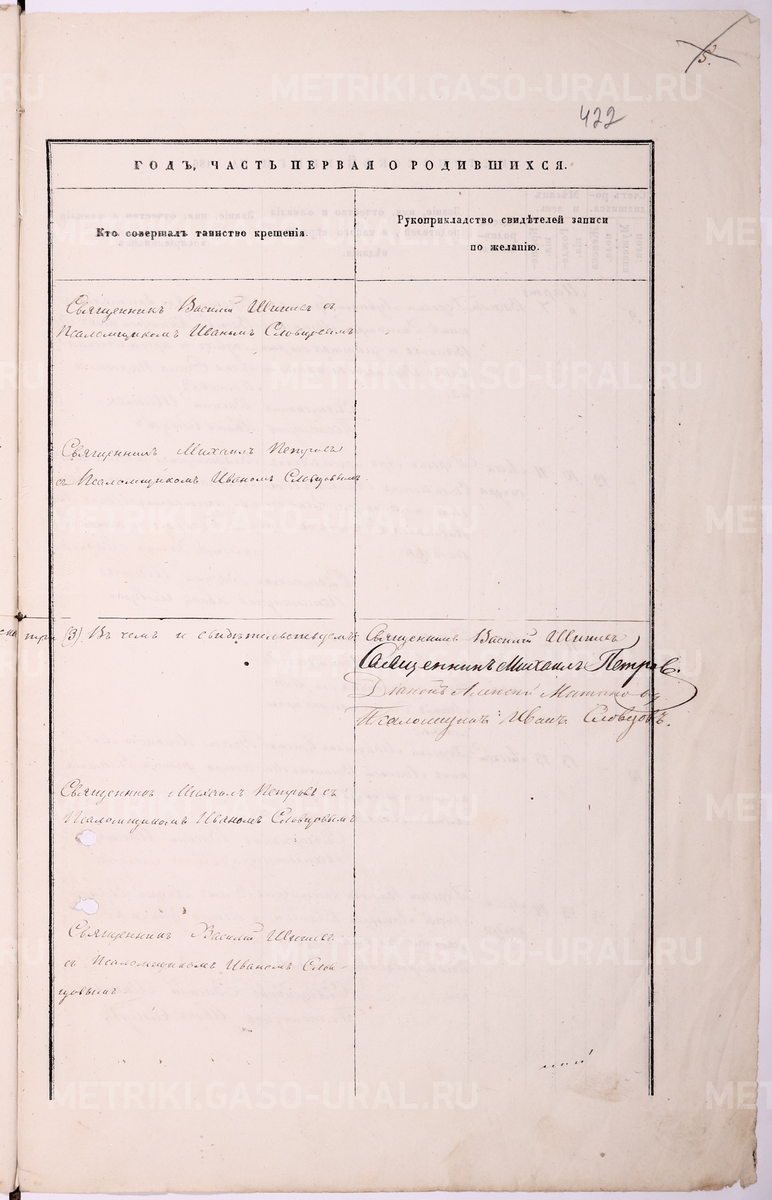 5.
422
ГОДЪ, ЧАСТЬ ПЕРВАЯ О РОДИВШИХСЯ.
Кто совершалъ таинство крещенія.
Рукоприкладство свидѣтелей записи
по желанію.
Священникъ Василій съ
Псаломщикомъ Иваномъ Словцовымъ
Священникъ Михаилъ Петровъ
съ Псаломщикомъ Иваномъ Словцовымъ.
три (3). Въ чемъ и свидѣтельствуемъ:
Священникъ Василій
Священникъ Михаилъ Петров.
Діаконъ Алексій
Псаломщикъ Иванъ Словцовъ.
Священникъ Михаилъ Петровъ съ
Псаломщикомъ Иваномъ Словцовымъ
Священникъ Василій
съ Псаломщикомъ Иваномъ Слов-
цовымъ
METRIKI.GASO-URAL.RU